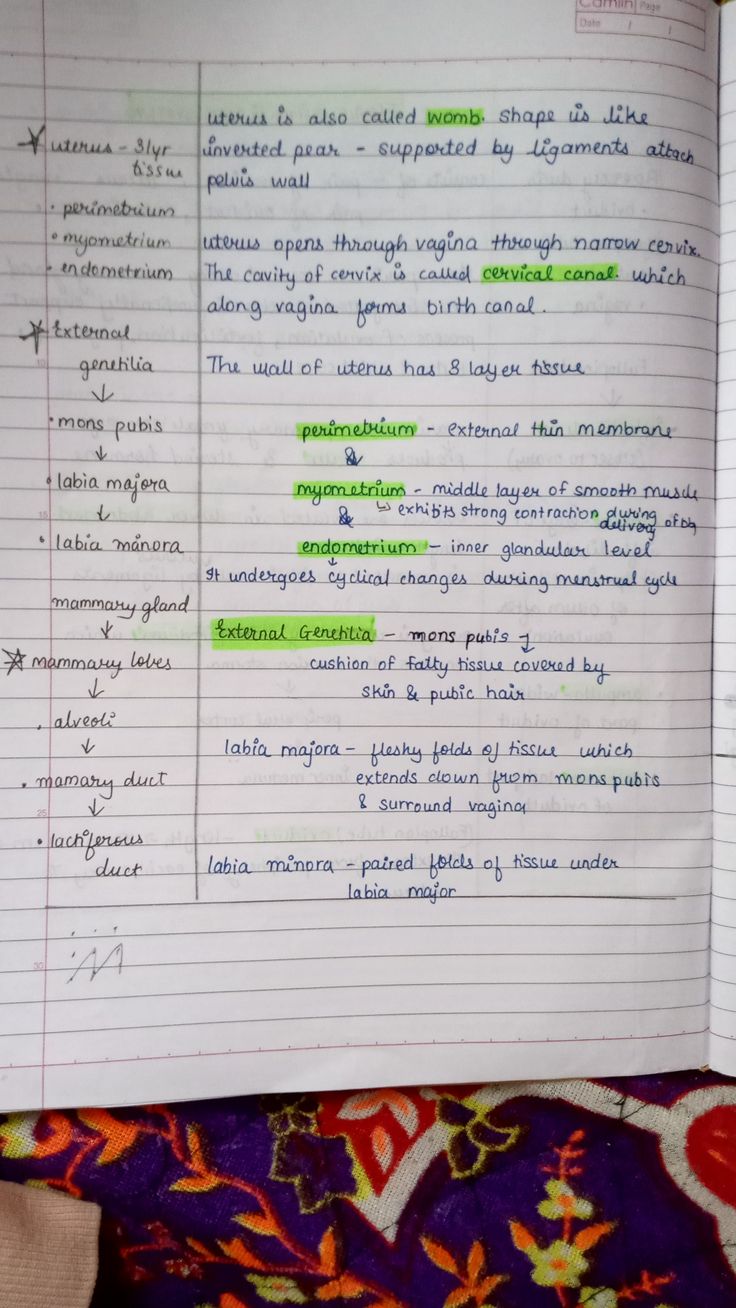 Camlin Page
Date / /
uterus is also called womb. shape is like
inverted pear - supported by ligaments attach
pelvis wall
uterus opens through vagina through narrow cervix.
The cavity of cervix is called cervical canal. which
along vagina forms birth canal.
The wall of uterus has 3 layer tissue
perimetrium - external thin membrane
&
myometrium - middle layer of smooth muscle
& ↳ exhibits strong contraction during
delivery of
endometrium - inner glandular level
It undergoes cyclical changes during menstrual cycle
External Genetilia - mons pubis
cushion of fatty tissue covered by
skin & pubic hair
labia majora - fleshy folds of tissue which
extends down from mons pubis
& surround vagina
labia minora - paired folds of tissue under
labia major
uterus - 3lyr
tissue
• perimetrium
• myometrium
• endometrium
External
genetilia
↓
• mons pubis
↓
• labia majora
↓
• labia manora
mammary gland
↓
mammary lobes
↓
• alveoli
↓
• mamary duct
↓
• lactiferous
duct
10
15
25
30